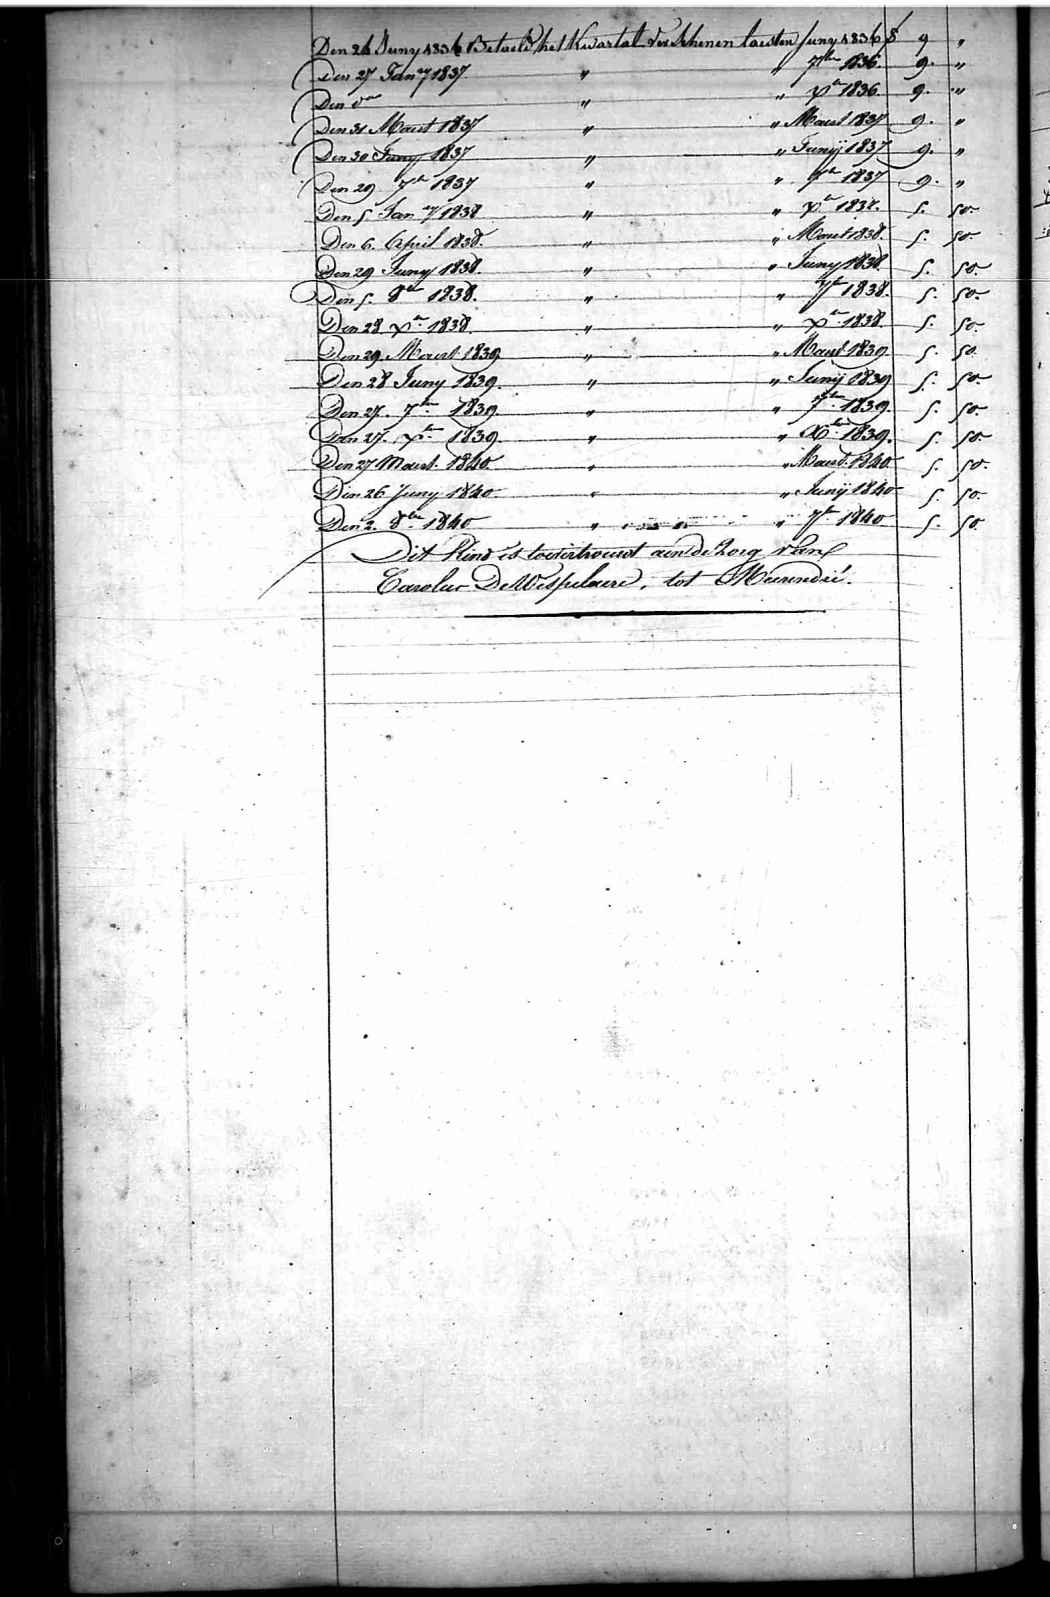 Den 26 Juny 1836 Betaeld het Kwartal verschenen laesten Juny 1836 f 9 "
Den 27 Jan ry 1837 " " 7bre 1836. 9. "
Den do " " xbr 1836. 9. "
Den 31 Maert 1837 " " Maert 1837 9. "
Den 30 Juny 1837 " " Junij 1837 9. "
Den 29 7br 1837 " " 7br 1837 9. "
Den 5 Jan ry 1838 " " xbr 1837. 5. 50.
Den 6. April 1838. " " Maert 1838. 5. 50.
Den 29 Juny 1838. " " Juny 1838. 5. 50.
Den 5. 8br 1838. " " 7br 1838. 5. 50.
Den 28 xbr 1838. " " xbr 1838. 5. 50.
Den 29 Maert 1839 " " Maert 1839 5. 50.
Den 28 Juny 1839. " " Junij 1839 5. 50.
Den 27. 7br 1839. " " 7bre 1839. 5. 50.
Den 27. xbr 1839. " " Xbre 1839. 5. 50.
Den 27 Maert. 1840 " " Maert. 1840 5. 50.
Den 26 Juny 1840. " " Junij 1840 5. 50.
Den 2. 8bre 1840 " " 7br 1840 5. 50.
Dit kind is toevertrouwt aen de zorg van
Carolus DeWispelaere, tot Meerendré.